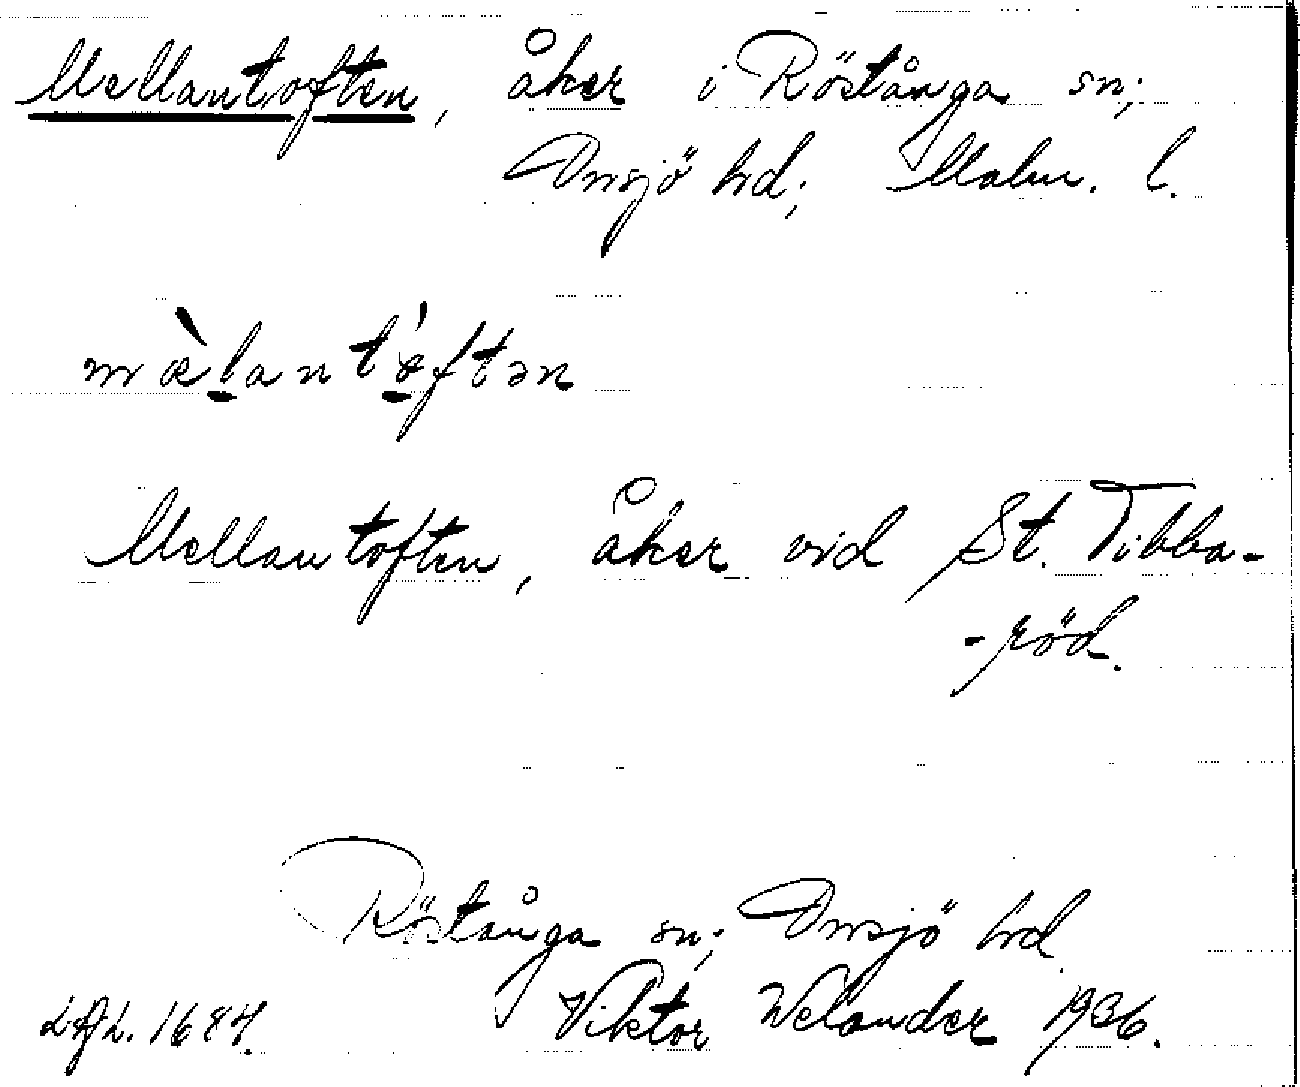 Mellantoften, åker i Röstånga sn;
Onsjö hd; Malm. l.
mæ̀lantáftən
Mellantoften, åker vid St. Tibba-
-röd.
Röstånga sn; Onsjö hd
Viktor Welander 1936.